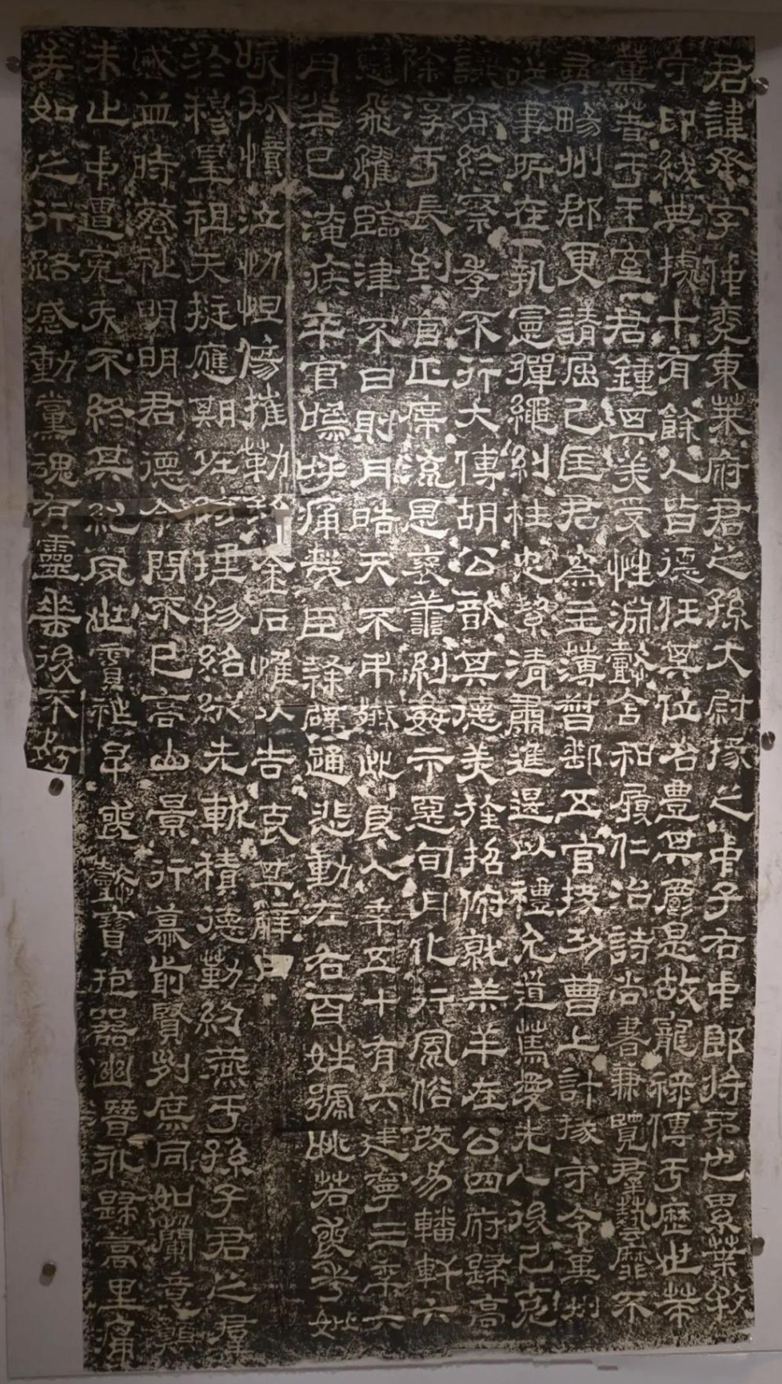 君諱承字仲兗東萊府君之孫大尉掾之中子右中郎將弟也累葉牧
守印紱典據十有餘人皆德任其位名豊其爵是故寵祿傳于歷世策
薰著于王室君鍾其美受性淵懿含和履仁治詩尚書兼覽羣藝靡不
尋暢州郡更請屈己匡君為主薄督郵五官掾功曹上計掾守令冀州
從事所在執憲彈繩糾枉忠絜清肅進退以禮允道篤愛先人後己克
讓有終察孝不行大傅胡公歆其德美旌招俯就羔羊在公四府歸高
除淳于長到官正席流恩褒善糾姦示惡旬月化行風俗改易轓軒六
轡飛躍臨津不日則月皓天不弔殲此良人年五十有六建寧三年六
月癸巳淹疾卒官嗚呼痛哉臣隸辟踊悲動左右百姓號咷若喪考妣
咳孤憤泣忉怛傷摧勒銘金石惟以告哀其辭曰
於穆皇祖天挺應期佐時理物紹縱先軌積德勤約燕于孫子君之羣
慼並時繁祉明明君德令問不已高山景行慕前賢列庶同如蘭意願
未止中遭冤夭不終其紀夙世實祚早喪懿寶抱器幽潛永歸蒿里痛
矣如之行路感動黨魂有靈垂後不朽